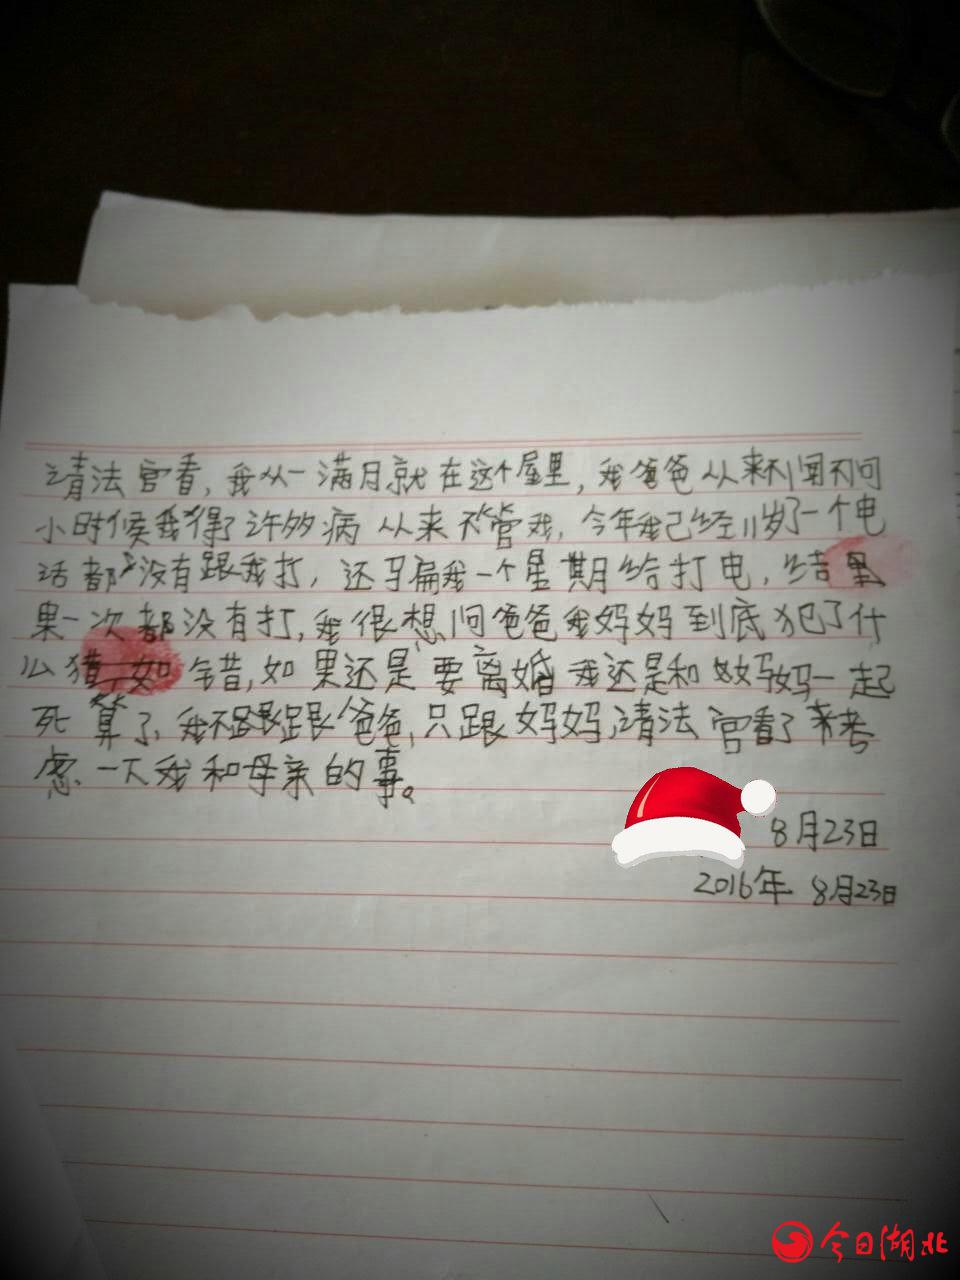 请法官看,我从一满月就在这个屋里,我爸爸从来不闻不问
小时候我得了许多病 从来不管我,今年我已经11岁了一个电
话都没有跟我打,还马扁我一个星期给打电,结里
果一次都没有打,我很想问爸爸我妈妈到底犯了什
么错,如果还是要离婚我还是和妈妈一起
死算了,我不跟爸爸,只跟妈妈,请法官看了来考
虑一下我和母亲的事。
8月23日
2016年 8月23日
今日湖北